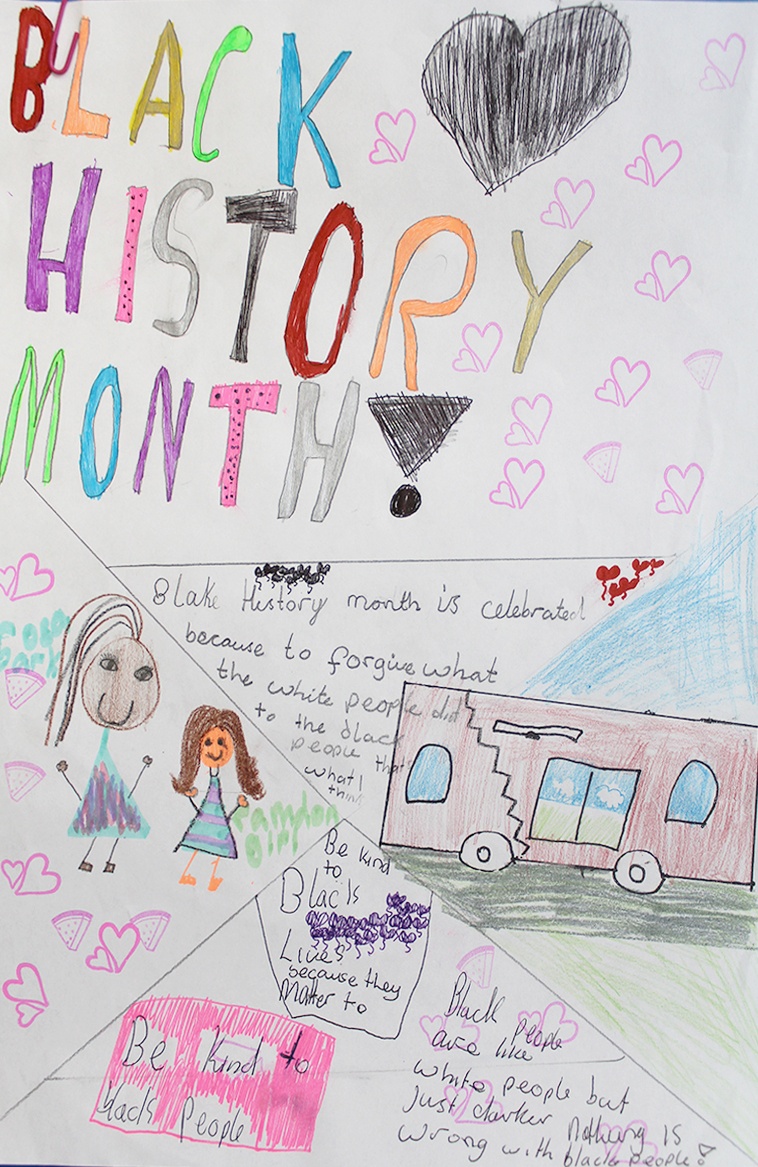 BLACK
HISTORY
MONTH!
Blake History month is celebrated
because to forgive what
the white people did
to the black
people that
what I
think
Rosa
Park
random
girl
Be kind
to
Blacks
Lives
because they
Matter to
Be kind to
blacks People
Black people
are like
white people but
just darker nothing is
wrong with black people!